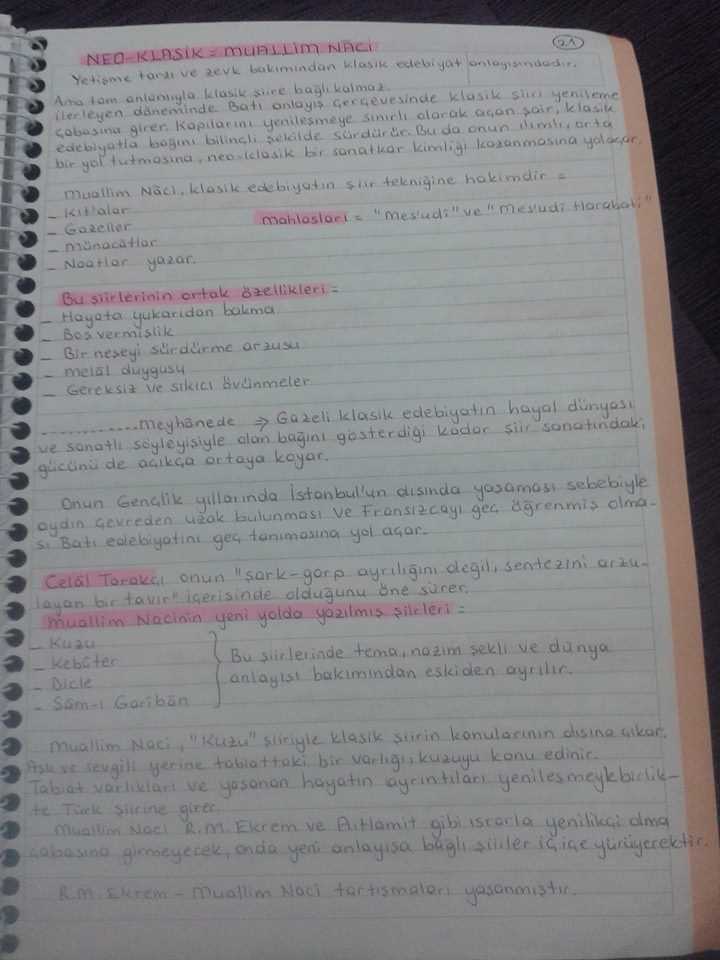 21
NEO-KLASİK = MUALLİM NÂCİ
Yetişme tarzı ve zevk bakımından klasik edebiyat anlayışındadır.
Ama tam anlamıyla klasik şiire bağlı kalmaz.
İlerleyen döneminde Batı anlayış çerçevesinde klasik şiiri yenileme
çabasına girer. Kapılarını yenileşmeye sınırlı olarak açan şair, klasik
edebiyatla bağını bilinçli şekilde sürdürür. Bu da onun ılımlı, orta
bir yol tutmasına, neo-klasik bir sanatkar kimliği kazanmasına yol açar.
Muallim Nâci, klasik edebiyatın şiir tekniğine hakimdir =
- Kıt'alar
- Gazeller
Mahlasları = "Mes'udi" ve "Mes'udi Harabati"
- Münacâtlar
- Naatlar yazar.
Bu şiirlerinin ortak özellikleri =
- Hayata yukarıdan bakma
- Boş vermişlik
- Bir neşeyi sürdürme arzusu
- melâl duygusu
- Gereksiz ve sıkıcı övünmeler
............Meyhânede ⇒ Gazeli klasik edebiyatın hayal dünyası
ve sanatlı söyleyişiyle olan bağını gösterdiği kadar şiir sanatındaki
gücünü de açıkça ortaya koyar.
Onun Gençlik yıllarında İstanbul'un dışında yaşaması sebebiyle
aydın çevreden uzak bulunması ve Fransızcayı geç öğrenmiş olma-
sı Batı edebiyatını geç tanımasına yol açar.
Celâl Tarakçı onun "şark-garp ayrılığını değil, sentezini arzu-
layan bir tavır" içerisinde olduğunu öne sürer.
Muallim Nacinin yeni yolda yazılmış şiirleri =
- Kuzu
- Kebûter
- Dicle
- Şâm-ı Garibân
Bu şiirlerinde tema, nazım şekli ve dünya
anlayışı bakımından eskiden ayrılır.
Muallim Naci, "Kuzu" şiiriyle klasik şiirin konularının dışına çıkar.
Aşk ve sevgili yerine tabiattaki bir varlığı, kuzuyu konu edinir.
Tabiat varlıkları ve yaşanan hayatın ayrıntıları yenileşmeyle birlik-
te Türk şiirine girer.
Muallim Naci R.M. Ekrem ve A.Hamit gibi ısrarla yenilikçi olma
çabasına girmeyecek, onda yeni anlayışa bağlı şiirler iç içe yürüyecektir.
R.M. Ekrem - Muallim Naci tartışmaları yaşanmıştır.